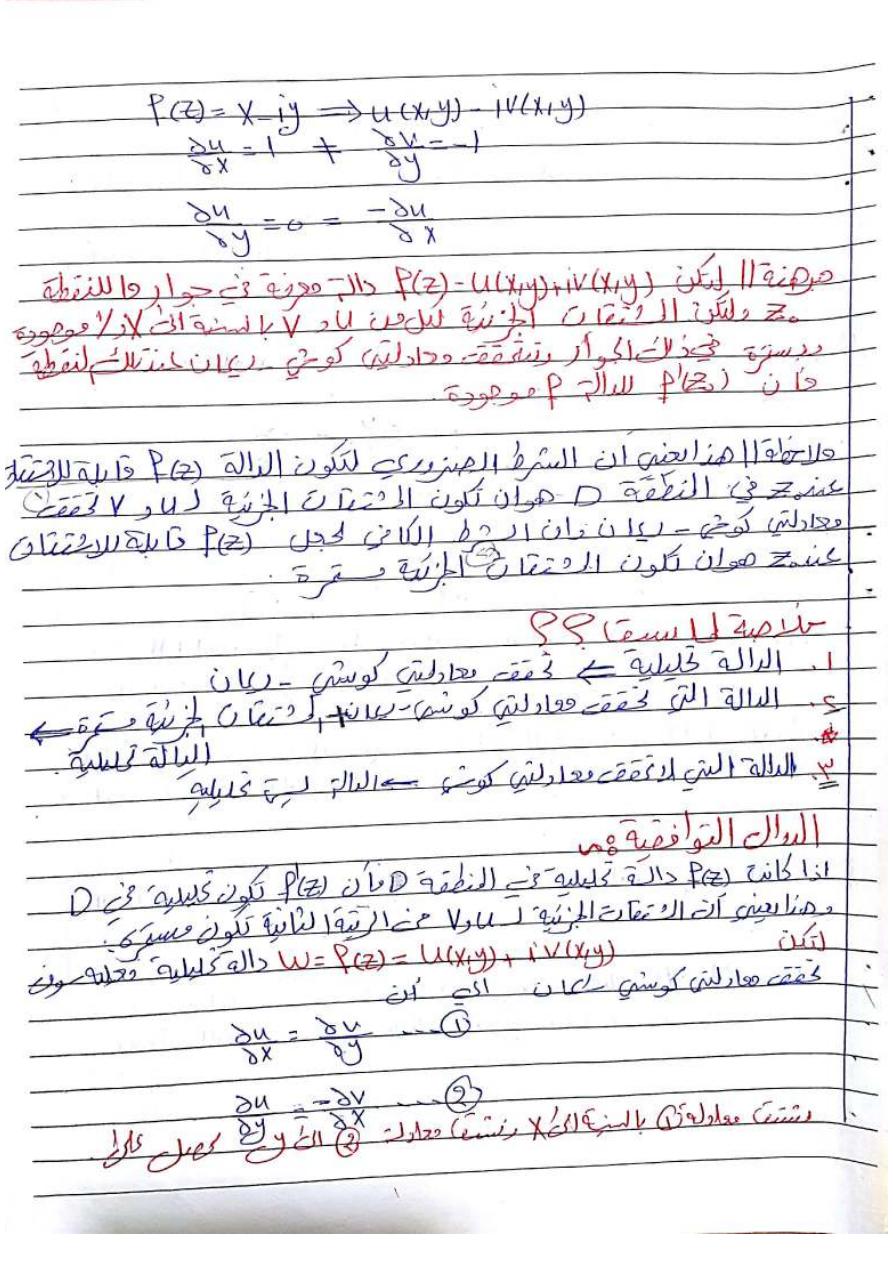 f(z) = x - iy ⟹ u(x,y) - iv(x,y)
∂u/∂x = 1 ≠ ∂v/∂y = -1
∂u/∂y = 0 = -∂u/∂x
مبرهنة // لتكن f(z) = u(x,y)+iv(x,y) دالة معرفة في جوار ما للنقطة
z₀ ولتكن المشتقات الجزئية لكل من u و v بالنسبة الى x و y موجودة
ومستمرة في ذلك الجوار وتتحقق معادلتي كوشي - ريمان عند تلك النقطة
فأن f'(z₀) للدالة f موجودة.
ملاحظة // هذا يعني أن الشرط الضروري لتكون الدالة f(z) قابلة للاشتقاق
عند z₀ في المنطقة D هو ان تكون المشتقات الجزئية لـ u و v تحقق
معادلتي كوشي - ريمان وان الشرط الكافي لجعل f(z) قابلة للاشتقاق
عند z₀ هو ان تكون المشتقات الجزئية مستمرة.
خلاصة لما سبق؟؟
١. الدالة تحليلية ⇐ تحقق معادلتي كوشي - ريمان
٢. الدالة التي تحقق معادلتي كوشي - ريمان + المشتقات الجزئية مستمرة ⇐
الدالة تحليلية.
٣. الدالة التي لا تحقق معادلتي كوشي ← الدالة ليست تحليلية
الدوال التوافقية:
اذا كانت f(z) دالة تحليلية في المنطقة D فأن f'(z) تكون تحليلية في D
وهذا يعني أن المشتقات الجزئية لـ u و v من الرتبة الثانية تكون مستمرة.
لتكن w = f(z) = u(x,y) + iv(x,y) دالة تحليلية وعليه سوف
تحقق معادلتي كوشي ريمان اي أن
∂u/∂x = ∂v/∂y ... ①
∂u/∂y = -∂v/∂x ... ②
نشتق معادلة ① بالنسبة الى x ونشتق معادلة ② الى y نحصل على.